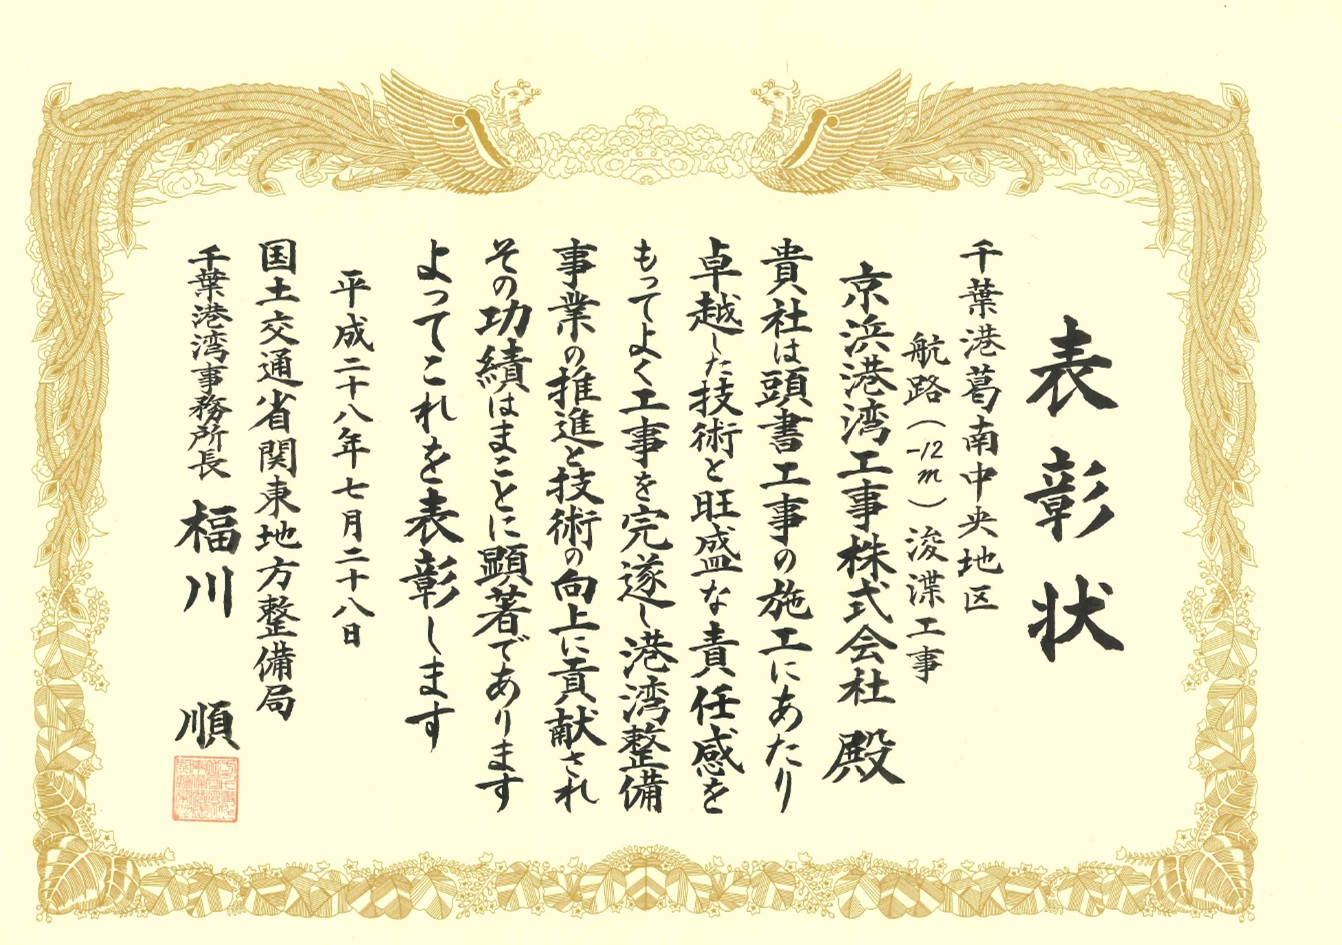 表彰状
千葉港葛南中央地区
航路(-12m)浚渫工事
京浜港湾工事株式会社 殿
貴社は頭書工事の施工にあたり
卓越した技術と旺盛な責任感を
もってよく工事を完遂し港湾整備
事業の推進と技術の向上に貢献され
その功績はまことに顕著であります
よってこれを表彰します
平成二十八年七月二十八日
国土交通省関東地方整備局
千葉港湾事務所長 福川 順